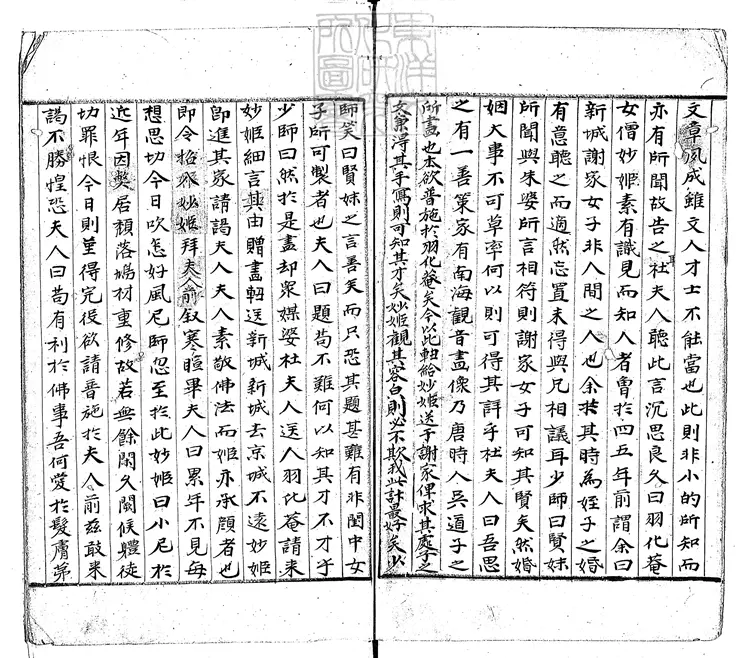 文章夙成雖文人才士不能當也此則非小的所知而
亦有所聞故告之杜夫人聽此言沉思良久曰羽化菴
女僧妙姬素有識見而知人者曾於四五年前謂余曰
新城謝家女子非人間之人也余於其時為姪子之婚
有意聽之而適然忘置未得與兄相議耳少師曰賢妹
所聞與朱婆所言相符則謝家女子可知其賢矣然婚
姻大事不可草率何以則可得其詳乎杜夫人曰吾思
之有一善策家有南海觀音畫像乃唐時人吳道子之
所畫也本欲普施於羽化菴矣今以此軸給妙姬送于謝家俾求其處子之
文兼得其手寫則可知其才矣妙姬觀其容白則必不欺我此計最好矣少
師笑曰賢妹之言善矣而只恐其題甚難有非閨中女
子所可製者也夫人曰題苟不難何以知其才不才乎
少師曰然於是盡却眾媒婆杜夫人送人羽化菴請来
妙姬細言其由贈畫軸送新城新城去京城不遠妙姬
即進其家請謁夫人夫人素敬佛法而姬亦承顔者也
即令招妙姬拜夫人前叙寒暄畢夫人曰累年不見每
想思切今日吹怎好風尼師忽至於此妙姬曰小尼於
近年因弊居頹落鳩材重修故若無餘閑久闕候軆徒
切罪恨今日則菫得完役欲請普施於夫人前玆敢来
謁不勝惶恐夫人曰苟有利於佛事吾何愛於髮膚第